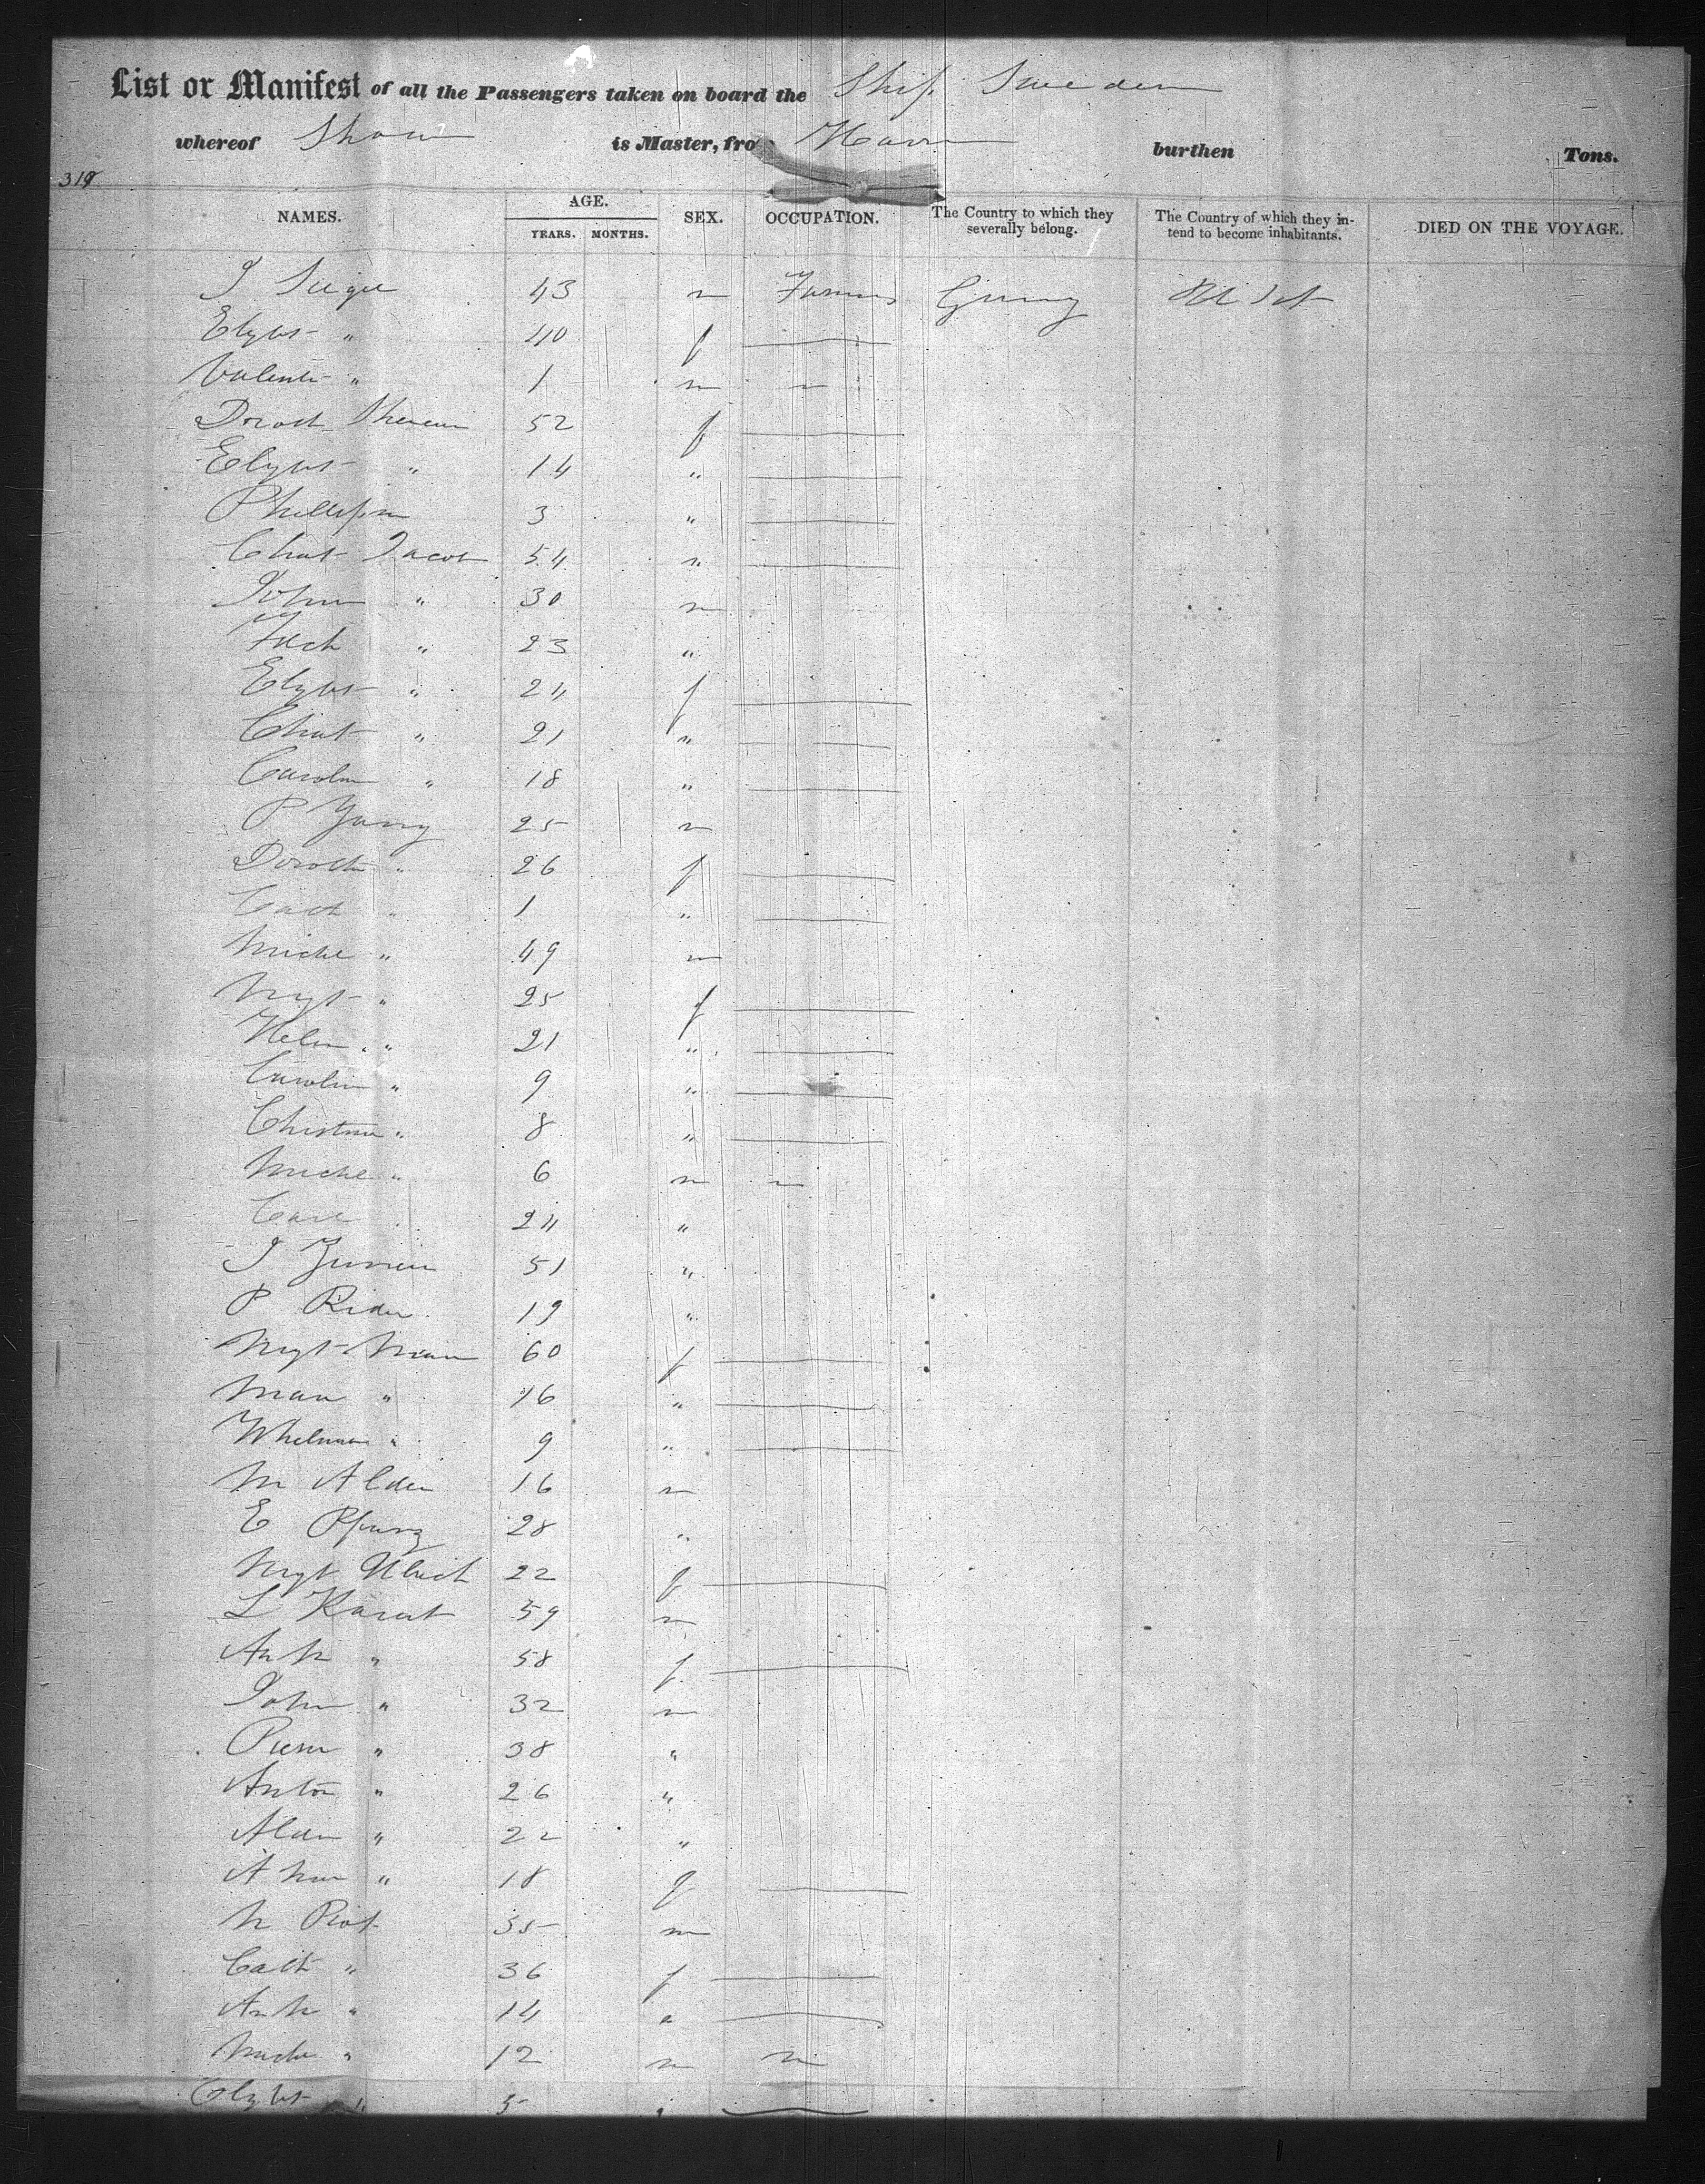 List or Manifest of all the Passengers taken on board the Ship Sweden
whereof Shaw is Master, from Havre burthen Tons.
319
NAMES. AGE. YEARS. MONTHS. SEX. OCCUPATION. The Country to which they severally belong. The Country of which they intend to become inhabitants. DIED ON THE VOYAGE.
J 43 m Farmer Germy U St
Elybt " 40 f
Valentin " 1 m
Doroth 52 f
Elybt " 14 "
Phillipin 3 "
Christ Jacob 54 "
John " 30 m
Fredh " 23 "
Elybt " 24 f
Christ " 21 "
Carolin " 18 "
P Yung 25 m
Doroth " 26 f
Cath " 1 "
Michl " 49 m
Mgt " 25 f
Helen " 21 "
Carolin " 9 "
Christine " 8 "
Michl " 6 m
Carl 24 "
J 51 "
P Rider 19 "
Mgt 60 f
" 16 "
Whelmin " 9 "
M 16 m
E 28 "
Mgt Ulrich 22 f
L 59 m
An M " 58 f
John " 32 m
Pierre " 38 "
Anton " 26 "
" 22 "
A Mar " 18 f
N Piot 35 m
Cath " 36 f
An M " 14 "
Michl " 12 m
Elybt " 5 "